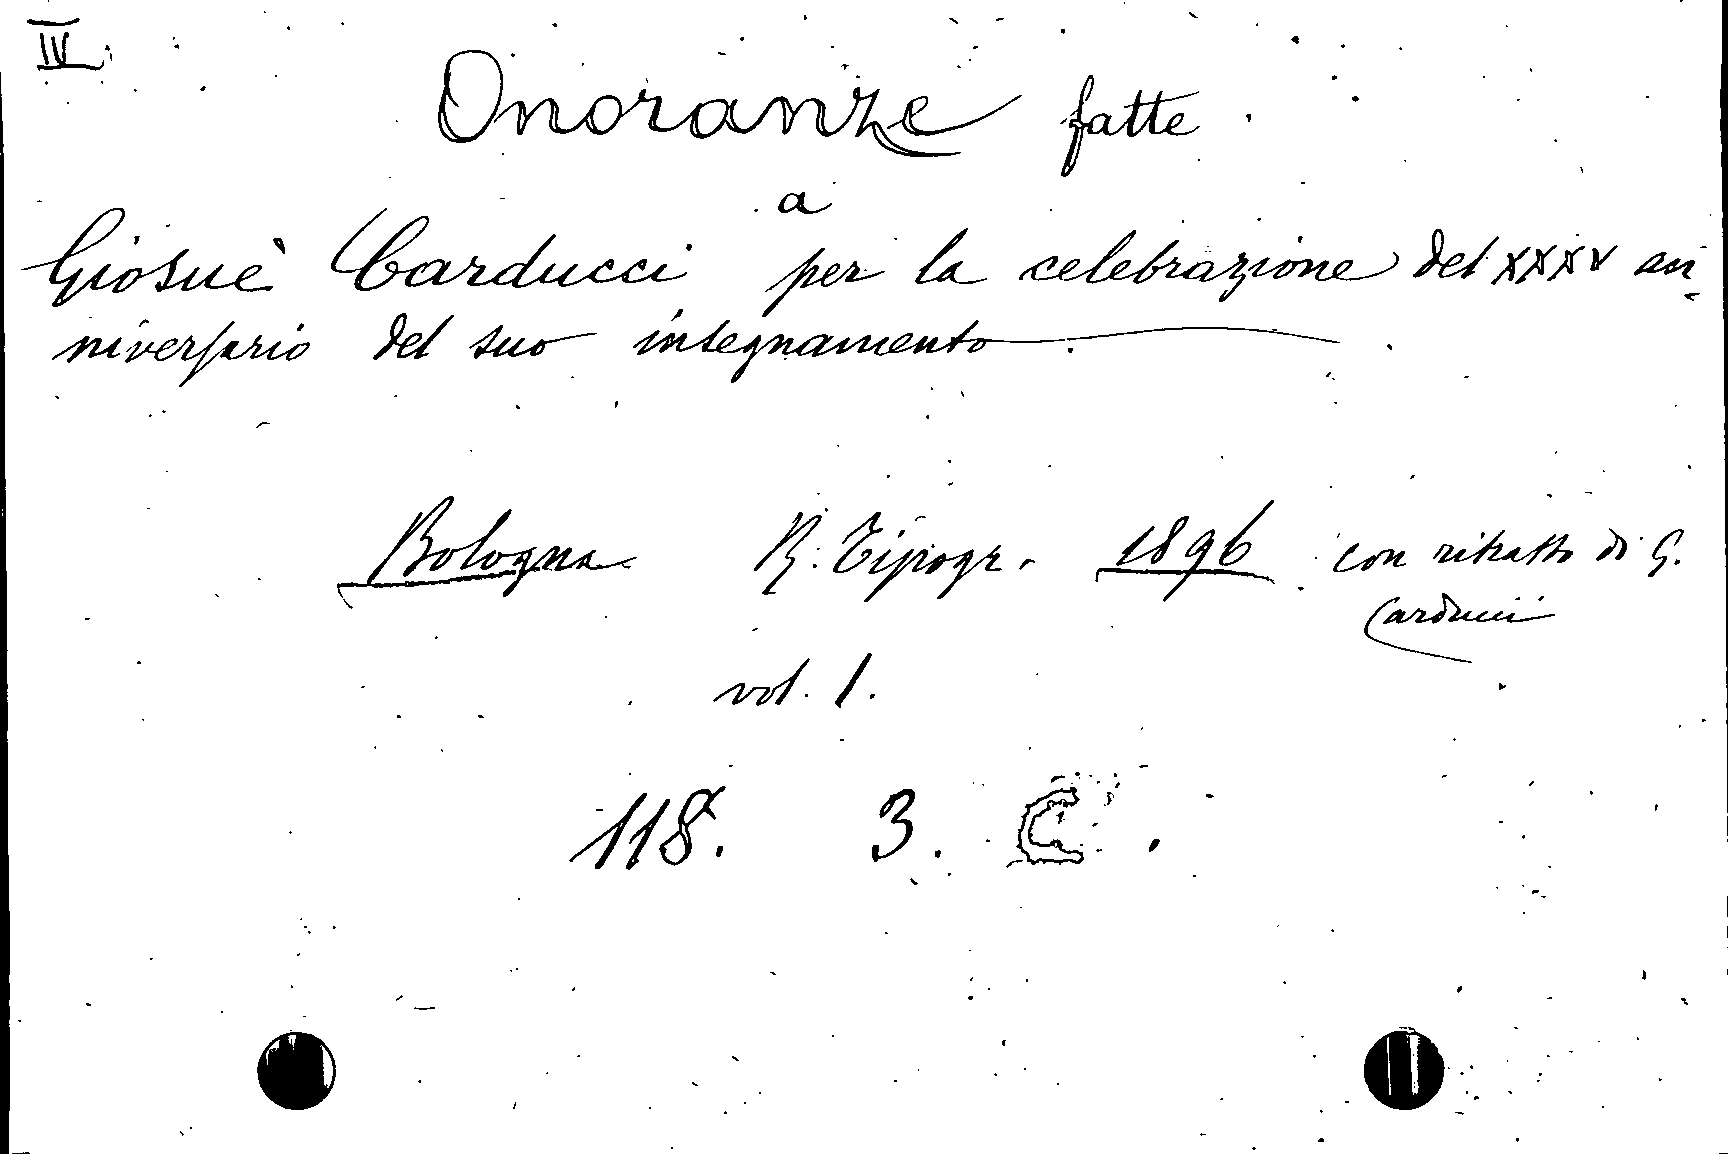 IV
Onoranze fatte
a
Giosuè Carducci per la celebrazione del XXXV an-
niversario del suo insegnamento
Bologna R. Tipogr. 1896 con ritratto di G.
Carducci
vol. 1.
118. 3. C.